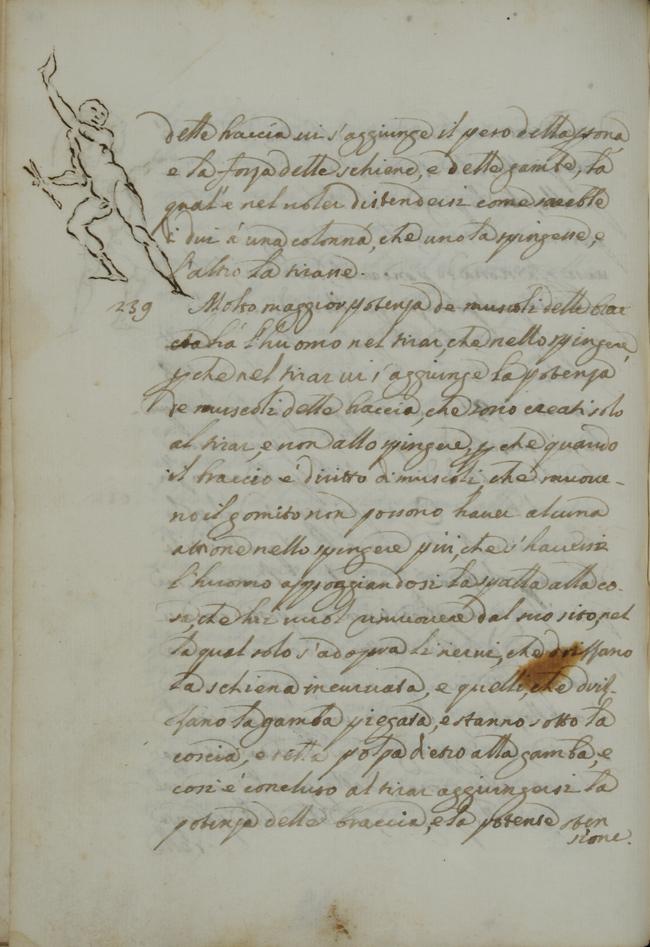 delle braccia ui s'aggiunge il peso della psona
e la forza delle schiene, e delle gambe, la
qual'è nel uoler distendersi come sarebbe
i dui à una colonna, che uno la spingesse, e
l'altro la tirasse.
239 Molto maggior potenza de muscoli delle brac
cia há l'huomo nel tirar, che nello spingere
pche nel tirar ui s'aggiunge la potenza
de muscoli delle braccia, che sono creati solo
al tirar, e non allo spingere, pche quando
il braccio è diritto i muscoli, che muoue-
no il gomito non possono hauer alcuna
attione nello spingere più, che s'hauesse
l'huomo appoggiandosi la spalla alla co-
sa, che lui uuol rimuouere dal suo sito, nel
la qual solo s'adopra li nerui, che drizzano
la schiena incuruata, e quelli, che driz-
zano la gamba piegata, e stanno sotto la
coscia, e nella polpa dietro alla gamba, e
così è concluso al tirar aggiungersi la
potenza delle braccia, e la potente sten
sione.